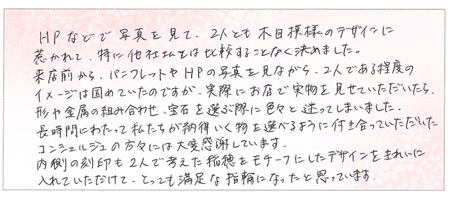 HPなどで写真を見て、2人とも木目模様のデザインに
惹かれて、特に他社さんとは比較することなく決めました。
来店前から、パンフレットやHPの写真を見ながら、2人である程度の
イメージは固めていたのですが、実際にお店で実物を見せていただいたら、
形や金属の組み合わせ、宝石を選ぶ際に色々と迷ってしまいました。
長時間にわたって私たちが納得いく物を選べるように付き合っていただいた
コンシェルジュの方々には大変感謝しています。
内側の刻印も2人で考えた稲穂をモチーフにしたデザインをきれいに
入れていただけて、とっても満足な指輪になったと思っています。